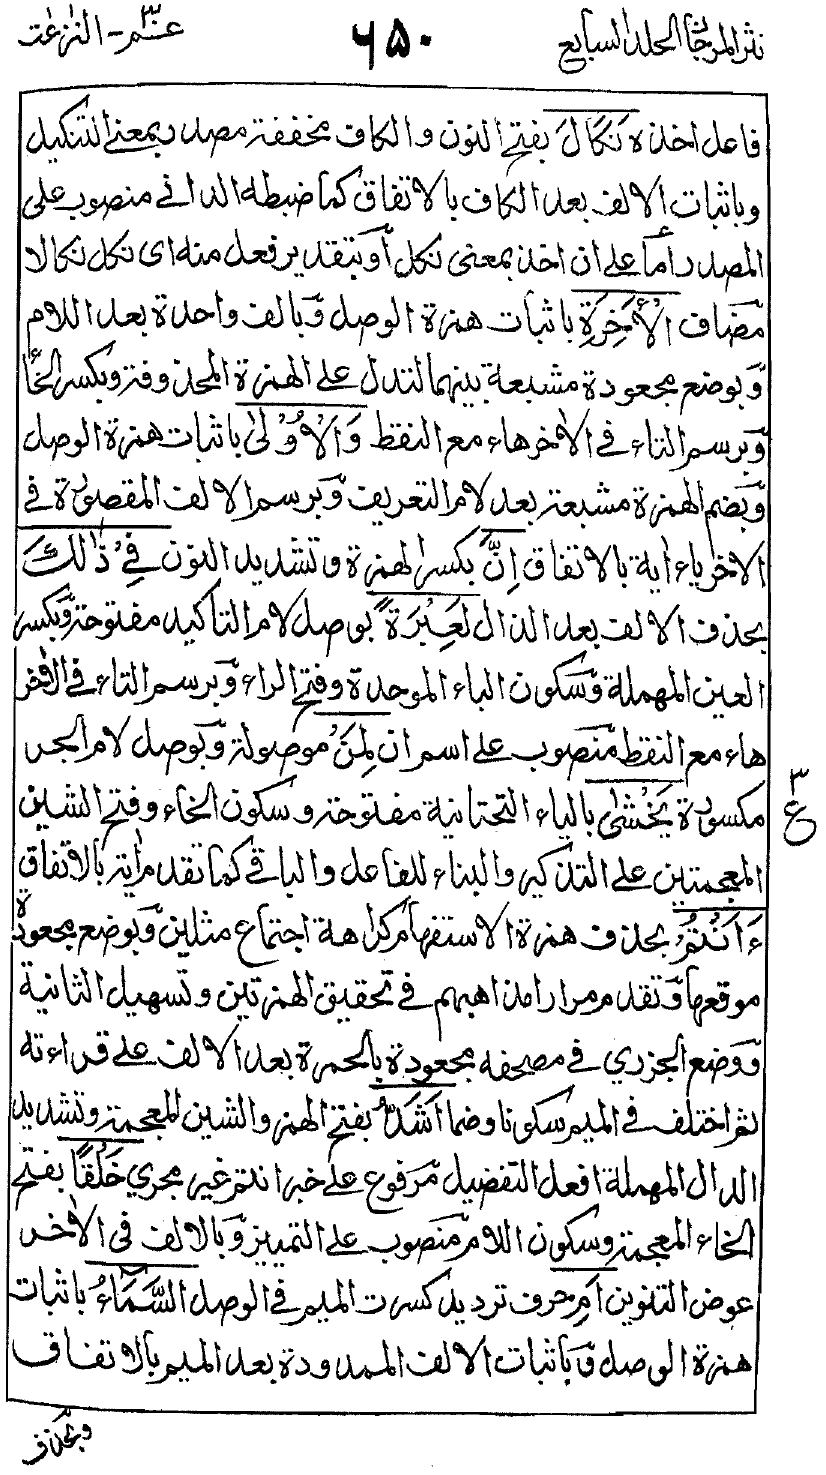 نثر المرجان الجلد السابع
۶۵۰
عٓمّ ۳۰ - النّٰزعٰت
فاعل اخذه نَكَالَ بفتح النون والكاف مخففة مصدر بمعنى التنكيل
وباثبات الالف بعد الكاف بالاتفاق كما ضبطه الداني منصوب على
المصدر اما على ان اخذ بمعنى نكل او بتقدير فعل منه اى نكل نكالا
مضاف الْاٰخِرَةِ باثبات همزة الوصل وبالف واحدة بعد اللام
وبوضع مجعودة مشبعة بينهما لتدل على الهمزة المحذوفة وبكسر الخاء
وبرسم التاء في الاٰخر هاء مع النقط وَالْاُوْلٰى باثبات همزة الوصل
وبضم الهمزة مشبعة بعد لام التعريف وبرسم الالف المقصورة في
الاٰخر ياء اٰية بالاتفاق اِنَّ بكسر الهمزة وتشديد النون فِيْ ذٰلِكَ
بحذف الالف بعد الذال لَعِبْرَةً بوصل لام التاكيد مفتوحة وبكسر
العين المهملة وسكون الباء الموحدة وفتح الراء وبرسم التاء في الاٰخر
هاء مع النقط منصوب على اسم ان لِمَنْ موصولة وبوصل لام الجر
مكسورة يَخْشٰى بالياء التحتانية مفتوحة وسكون الخاء وفتح الشين
المعجمتين على التذكير والبناء للفاعل والباقي كما تقدم اٰية بالاتفاق
ءَاَنْتُمْ بحذف همزة الاستفهام كراهة اجتماع مثلين وبوضع مجعودة
موقعها وتقدم مرارا مذاهبهم في تحقيق الهمزتين وتسهيل الثانية
ووضع الجزري في مصحفه مجعودة بالحمرة بعد الالف على قراءته
ثم اختلف في الميم سكونا وضما اَشَدُّ بفتح الهمز والشين المعجمة وتشديد
الدال المهملة افعل التفضيل مرفوع على خبر انتم غير مجري خَلْقًا بفتح
الخاء المعجمة وسكون اللام منصوب على التمييز وبالالف في الاٰخر
عوض التنوين اَمِ حرف ترديد كسرت الميم في الوصل السَّمَاءُ باثبات
همزة الوصل وباثبات الالف الممدودة بعد الميم بالاتفاق
۳
ع
وبحذف